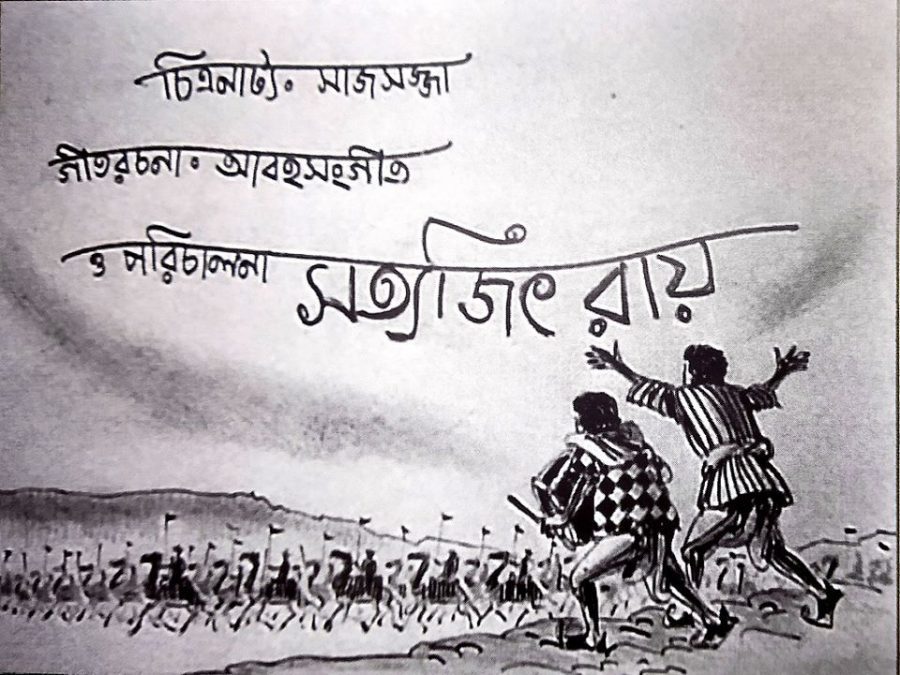 চিত্রনাট্য • সাজসজ্জা
গীতরচনা • আবহসংগীত
ও পরিচালনা সত্যজিৎ রায়